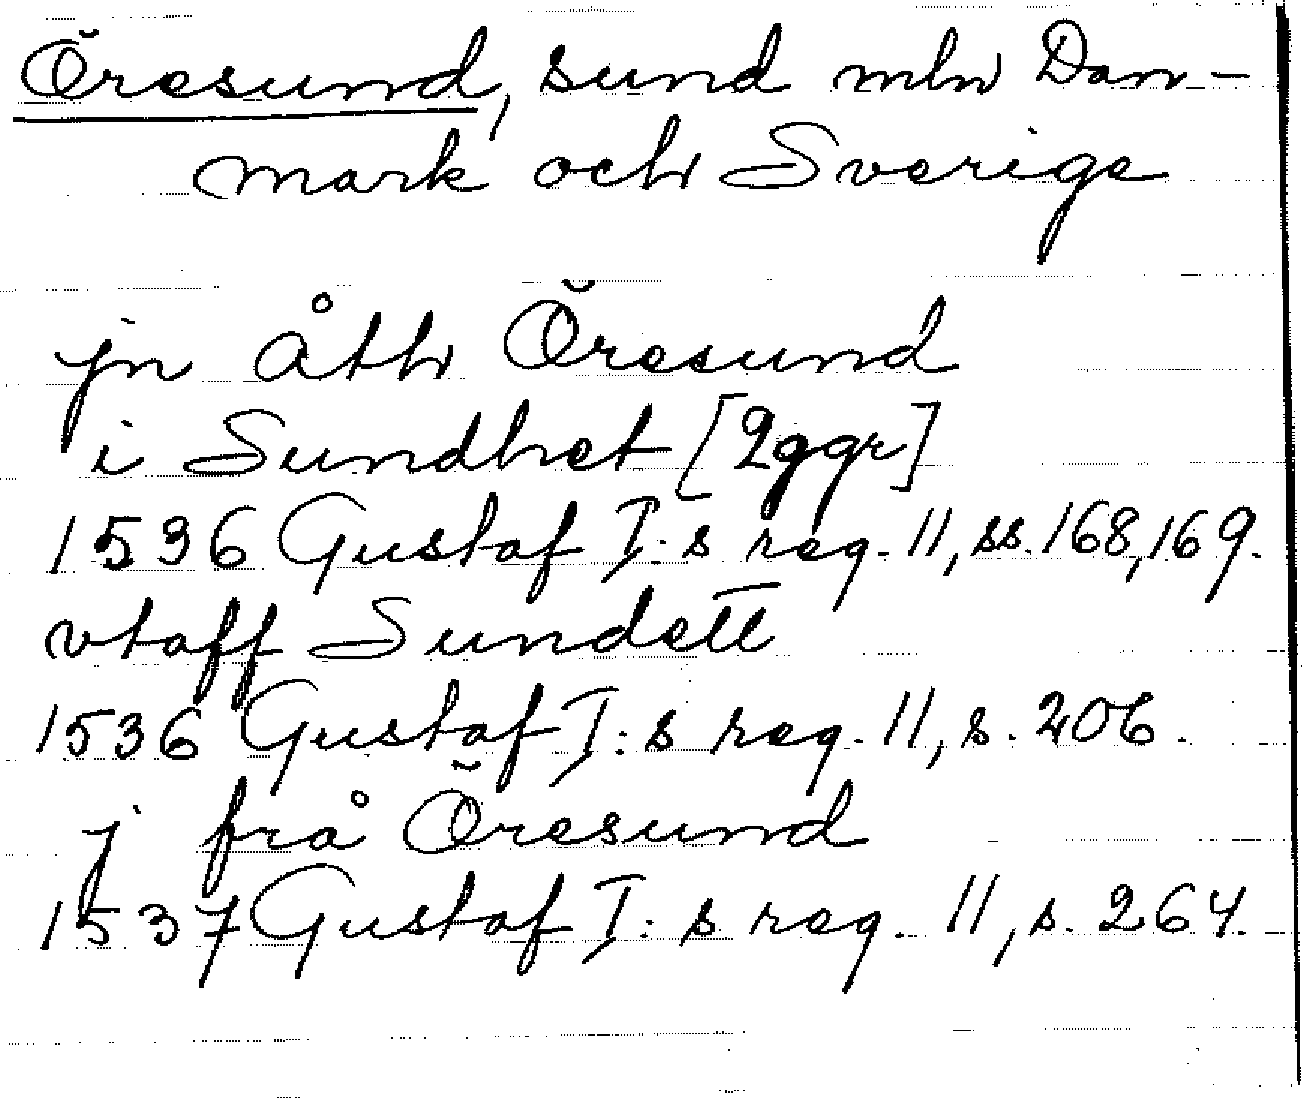 Öresund, sund mln Dan-
mark och Sverige
jn åth Öresund
i Sundhet [2ggr]
1536 Gustaf I:s reg. 11, ss. 168, 169.
vtaff Sundett
1536 Gustaf I:s reg. 11, s. 206.
j frå Öresund
1537 Gustaf I:s reg. 11, s. 264.